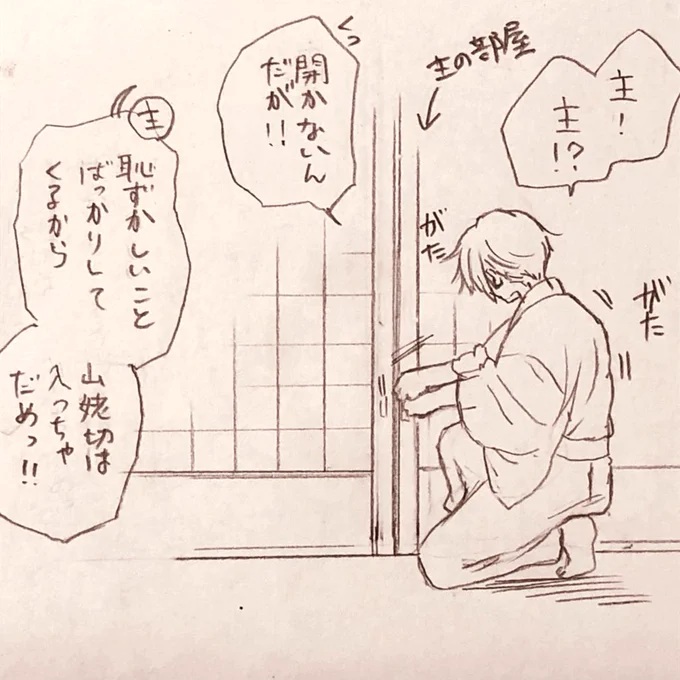 主!
主!?
主の部屋
がた
がた
くっ
開かないん
だが!!
主
恥ずかしいこと
ばっかりして
くるから
山姥切は
入っちゃ
だめっ!!